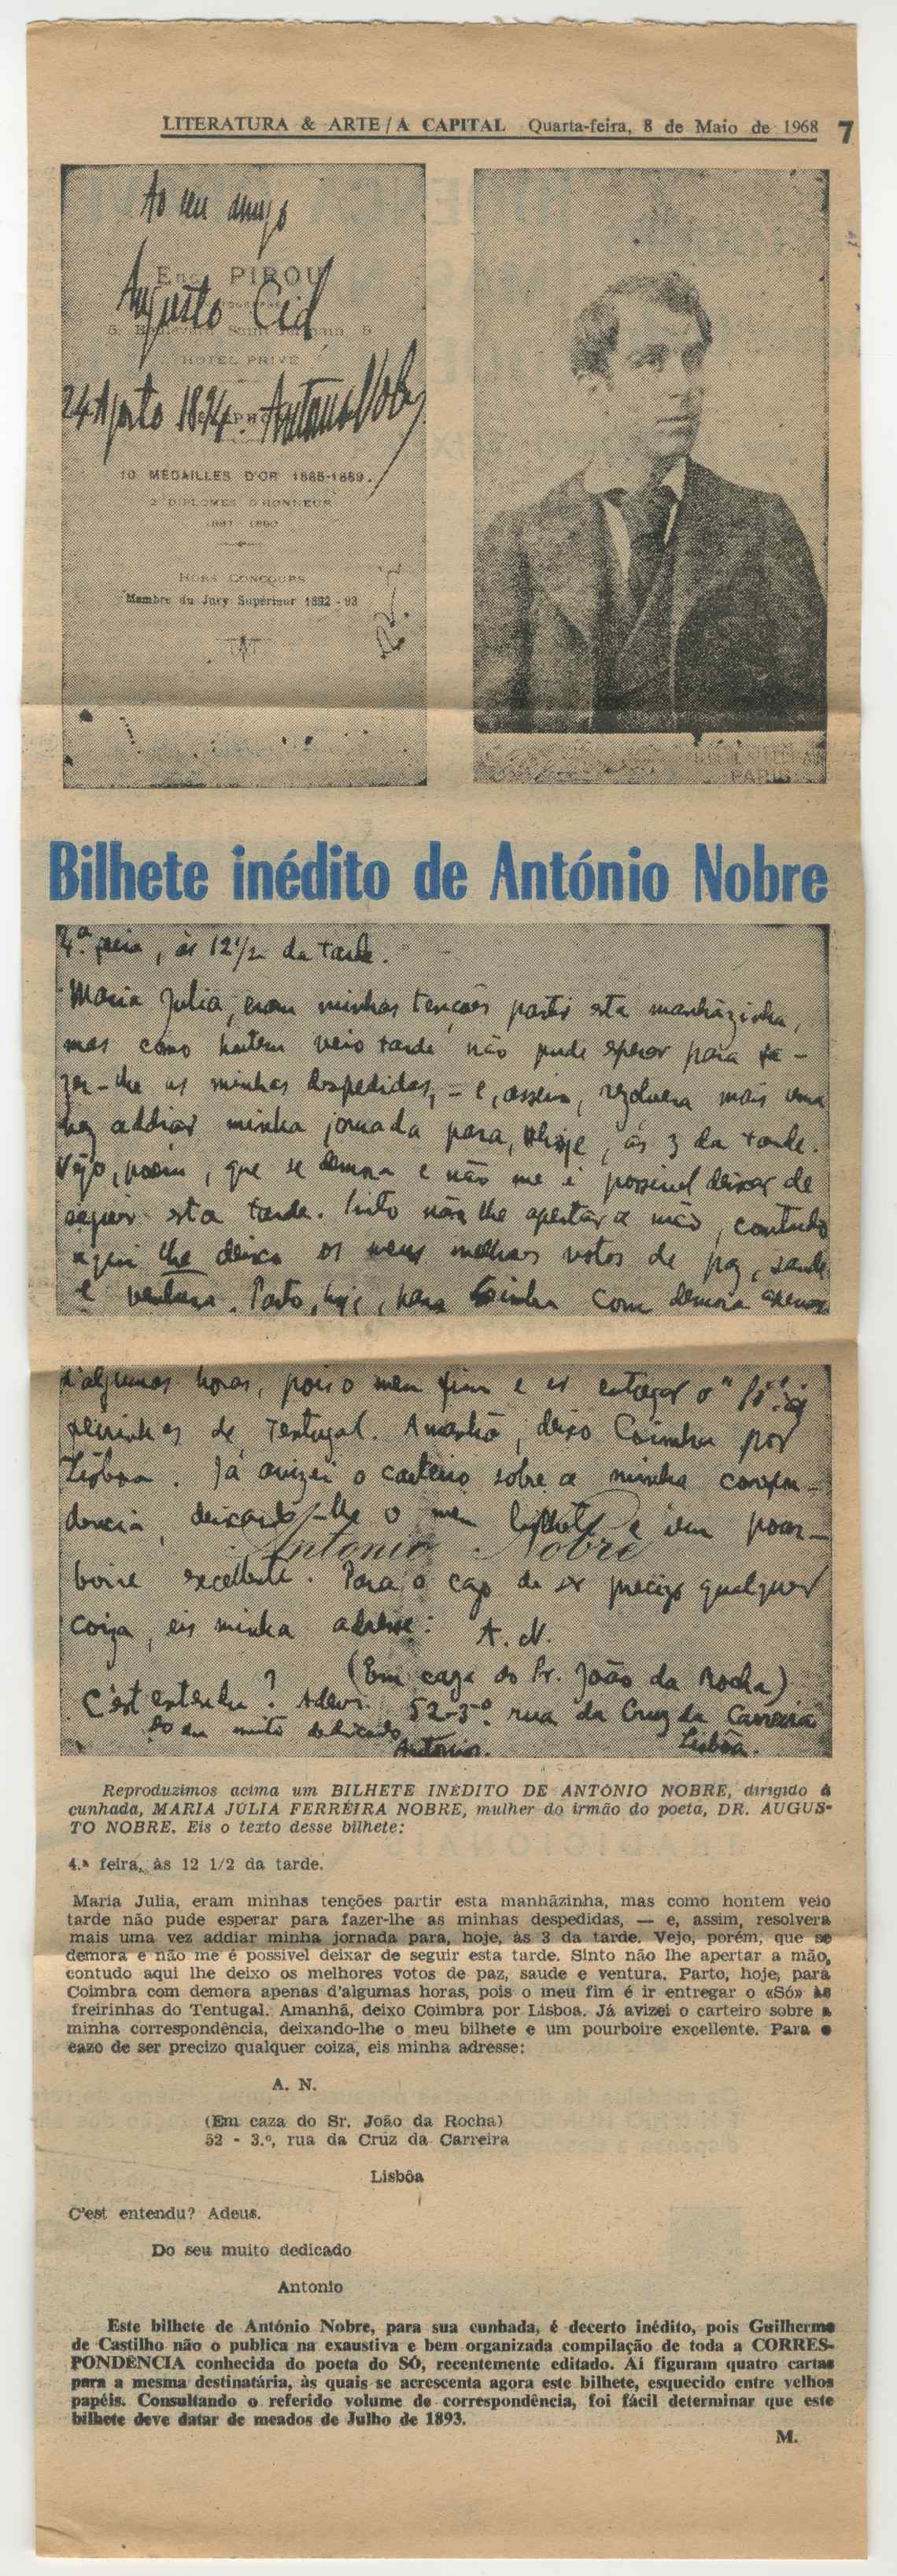 LITERATURA & ARTE / A CAPITAL Quarta-feira, 8 de Maio de 1968 7
Ao seu amigo
PIROU
Augusto Cid
5, Boulevard Saint Germain, 5
HOTEL PRIVÉ
24 Agosto 1894. Antonio Nobre
10 MÉDAILLES D'OR 1885-1889.
2 DIPLOMES D'HONNEUR
HORS CONCOURS
Membre du Jury Supérieur 1892-93
PARIS
Bilhete inédito de António Nobre
4.ª feira, ás 12 1/2 da tarde.
Maria Julia, eram minhas tenções partir esta manhãzinha,
mas como hontem veio tarde não pude esperar para fa-
zer-lhe as minhas despedidas, — e, assim, resolvera mais uma
vez addiar minha jornada para, hoje, ás 3 da tarde.
Vejo, porém, que se demora e não me é possivel deixar de
seguir esta tarde. Sinto não lhe apertar a mão, contudo
aqui lhe deixo os meus melhores votos de paz, saude
e ventura. Parto, hoje, para Coimbra com demora apenas
d'algumas horas, pois o meu fim é ir entregar o "Só" ás
freirinhas de Tentugal. Amanhã, deixo Coimbra por
Lisboa. Já avizei o carteiro sobre a minha correspon-
dencia, deixando-lhe o meu bilhete e um pour-
Antonio Nobre
boire excellente. Para o cazo de ser precizo qualquer
coiza, eis minha adresse: A. N.
(Em caza do Sr. João da Rocha)
C'est entendu? Adeus. 52-3.º rua da Cruz da Carreira
Do seu muito dedicado
Antonio. Lisbôa.
Reproduzimos acima um BILHETE INÉDITO DE ANTÓNIO NOBRE, dirigido à
cunhada, MARIA JÚLIA FERREIRA NOBRE, mulher do irmão do poeta, DR. AUGUS-
TO NOBRE. Eis o texto desse bilhete:
4.ª feira, às 12 1/2 da tarde.
Maria Julia, eram minhas tenções partir esta manhãzinha, mas como hontem veio
tarde não pude esperar para fazer-lhe as minhas despedidas, — e, assim, resolvera
mais uma vez addiar minha jornada para, hoje, às 3 da tarde. Vejo, porém, que se
demora e não me é possível deixar de seguir esta tarde. Sinto não lhe apertar a mão,
contudo aqui lhe deixo os melhores votos de paz, saude e ventura. Parto, hoje, para
Coimbra com demora apenas d'algumas horas, pois o meu fim é ir entregar o «Só» às
freirinhas do Tentugal. Amanhã, deixo Coimbra por Lisboa. Já avizei o carteiro sobre a
minha correspondência, deixando-lhe o meu bilhete e um pourboire excellente. Para o
cazo de ser precizo qualquer coiza, eis minha adresse:
A. N.
(Em caza do Sr. João da Rocha)
52 - 3.º, rua da Cruz da Carreira
Lisbôa
C'est entendu? Adeus.
Do seu muito dedicado
Antonio
Este bilhete de António Nobre, para sua cunhada, é decerto inédito, pois Guilherme
de Castilho não o publica na exaustiva e bem organizada compilação de toda a CORRES-
PONDÊNCIA conhecida do poeta do SÓ, recentemente editado. Aí figuram quatro cartas
para a mesma destinatária, às quais se acrescenta agora este bilhete, esquecido entre velhos
papéis. Consultando o referido volume de correspondência, foi fácil determinar que este
bilhete deve datar de meados de Julho de 1893.
M.